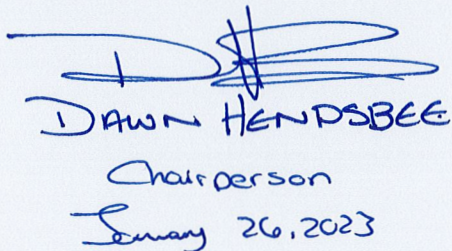 DAWN HENDSBEE
Chairperson
January 26, 2023